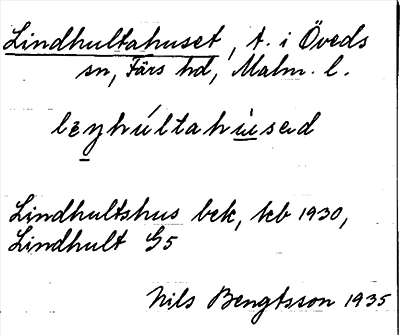 Lindhultahuset, t. i Öveds
sn, Färs hd, Malm. l.
lèŋhúltahùsəd
Lindhultshus bek, kb 1930,
Lindhult G5
Nils Bengtsson 1935